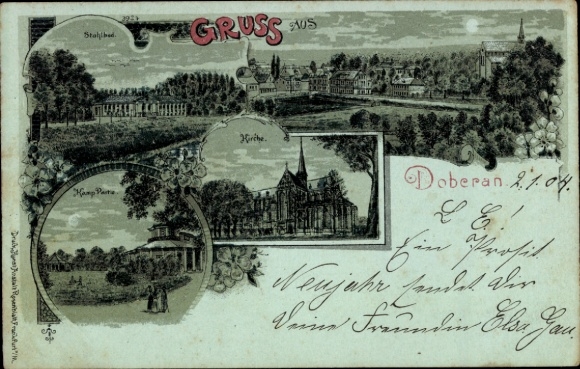 GRUSS AUS
Stahlbad.
Kirche.
Doberan. 2.1.04.
Kamp Partie.
L E!
Ein Prosit
Neujahr sendet dir
deine Freundin Elsa